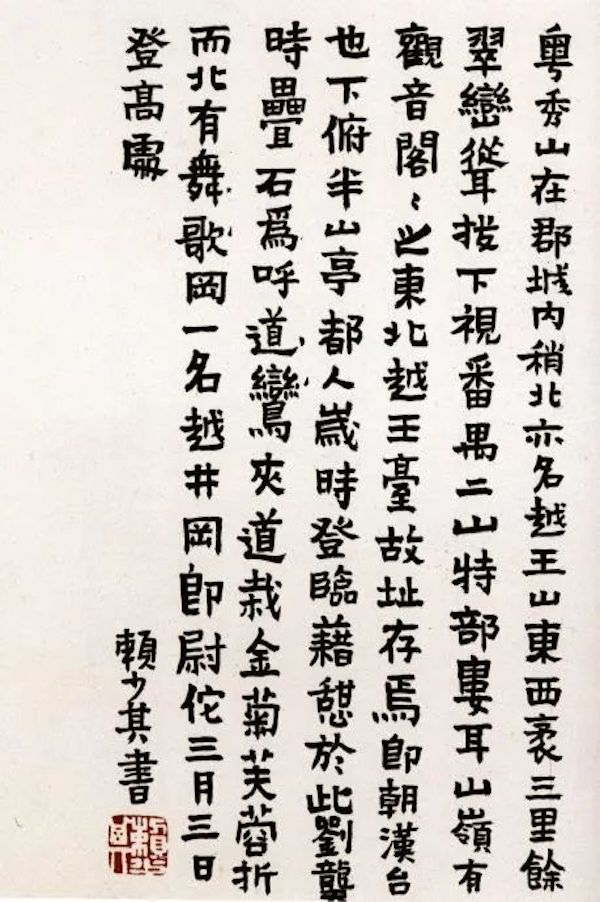 粵秀山在郡城内稍北亦名越王山東西袤三里餘
翠巒聳拔下視番禺二山特部婁耳山嶺有
觀音閣〻之東北越王臺故址存焉即朝漢台
也下俯半山亭都人歲時登臨藉憩於此劉龑
時疊石爲呼道鸞夾道栽金菊芙蓉折
而北有舞歌岡一名越井岡即尉佗三月三日
登高處
賴少其書